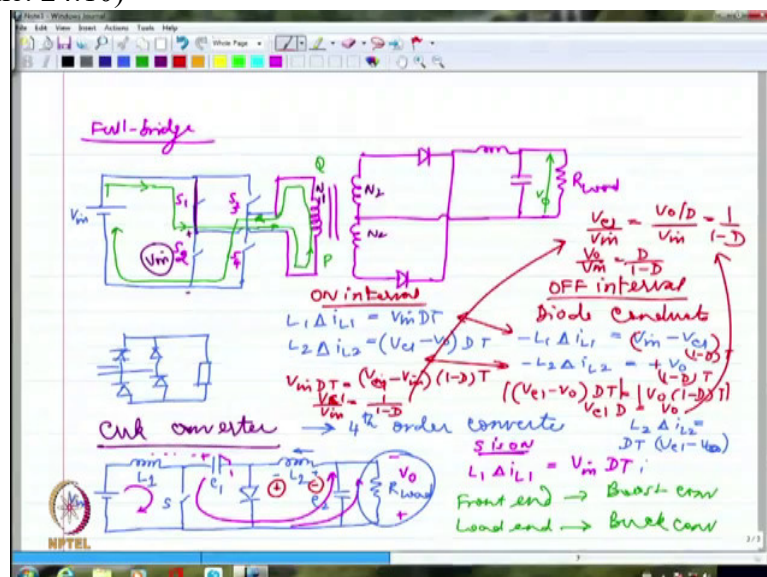 Note3 - Windows Journal
File Edit View Insert Actions Tools Help
Whole Page
Full-bridge
Vin
S1
S2
S3
S4
Vin
Q
N1
P
N2
N2
Vo
Rload
Vc1/Vin = Vo/D/Vin = 1/1-D
Vo/Vin = D/1-D
ON interval
L1 Δ iL1 = Vin DT
L2 Δ iL2 = (Vc1 - Vo) DT
Vin DT = (Vc1 - Vin) (1-D) T
Vc1/Vin = 1/1-D
OFF interval
Diode Conducts
-L1 Δ iL1 = (Vin - Vc1) (1-D) T
-L2 Δ iL2 = + Vo (1-D) T
[(Vc1 - Vo) DT] = [Vo (1-D) T]
Vc1 D = Vo
L2 Δ iL2 =
Cuk converter → 4th order converter
S is ON
L1 Δ iL1 = Vin DT
Front end → Boost conv
Load end → Buck conv
Vin
L1
S
C1
L2
C2
Vo
Rload
NPTEL